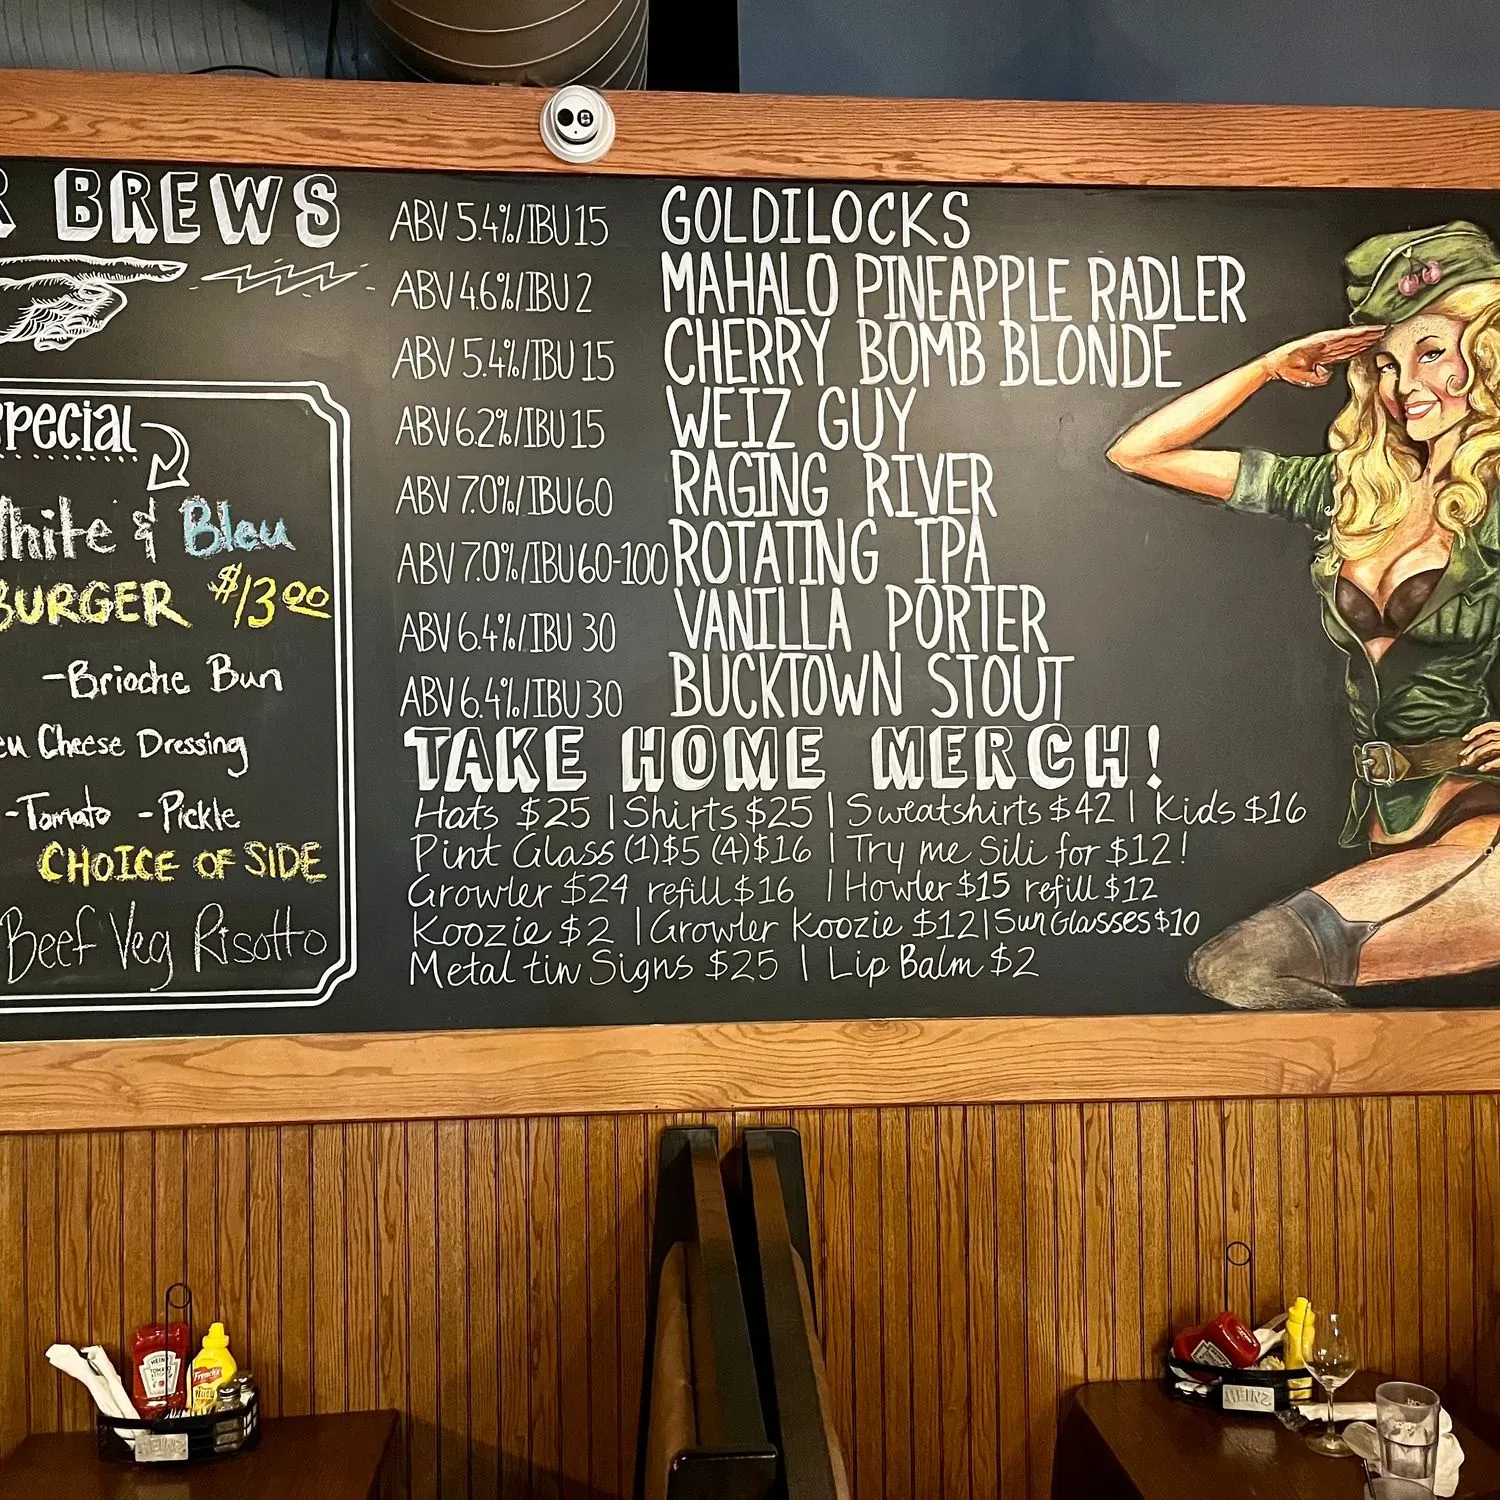 R BREWS
Special
White & Bleu
BURGER $13.00
-Brioche Bun
eu Cheese Dressing
-Tomato -Pickle
CHOICE OF SIDE
Beef Veg Risotto
ABV 5.4%/IBU 15 GOLDILOCKS
ABV 4.6%/IBU 2 MAHALO PINEAPPLE RADLER
ABV 5.4%/IBU 15 CHERRY BOMB BLONDE
ABV 6.2%/IBU 15 WEIZ GUY
ABV 7.0%/IBU 60 RAGING RIVER
ABV 7.0%/IBU 60-100 ROTATING IPA
ABV 6.4%/IBU 30 VANILLA PORTER
ABV 6.4%/IBU 30 BUCKTOWN STOUT
TAKE HOME MERCH!
Hats $25 | Shirts $25 | Sweatshirts $42 | Kids $16
Pint Glass (1)$5 (4)$16 | Try me Sili for $12!
Growler $24 refill $16 | Howler $15 refill $12
Koozie $2 | Growler Koozie $12 | SunGlasses $10
Metal tin Signs $25 | Lip Balm $2
HEINZ
TOMATO
French's
HEINZ
HEINZ